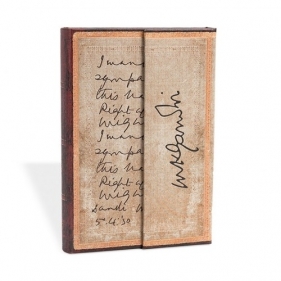 I wan
sympa
this Ba
Right a
Might
I wan
sympa
this Ba
Right a
Migh
Dandi
5.4.30
MKGandhi